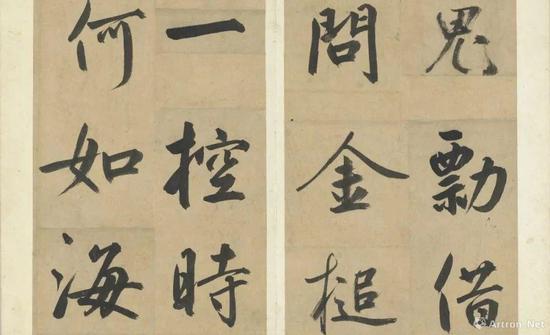 勡借
問金槌
一控時
何如海
Artron.Net